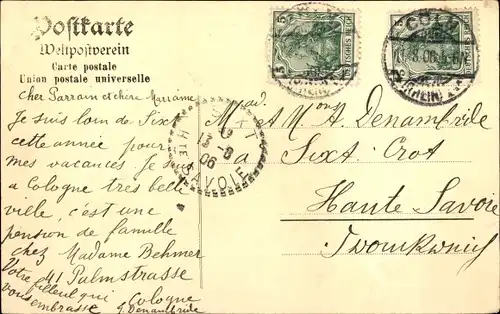 Postkarte
Weltpostverein
Carte postale
Union postale universelle
cher Parrain et chère Marraine
Je suis loin de Sixt
cette année pour
mes vacances Je suis
a Cologne très belle
ville, c'est une
pension de famille
chez Madame Behmer
41 Palmstrasse
Cologne
Votre filleul qui
vous embrasse
J. Denambride
M et M Denambride
a Sixt Crot
Haute Savoie
5 DEUTSCHES REICH
DEUTSCHES REICH 5
CÖLN
(RHEIN)
Hte SAVOIE
06